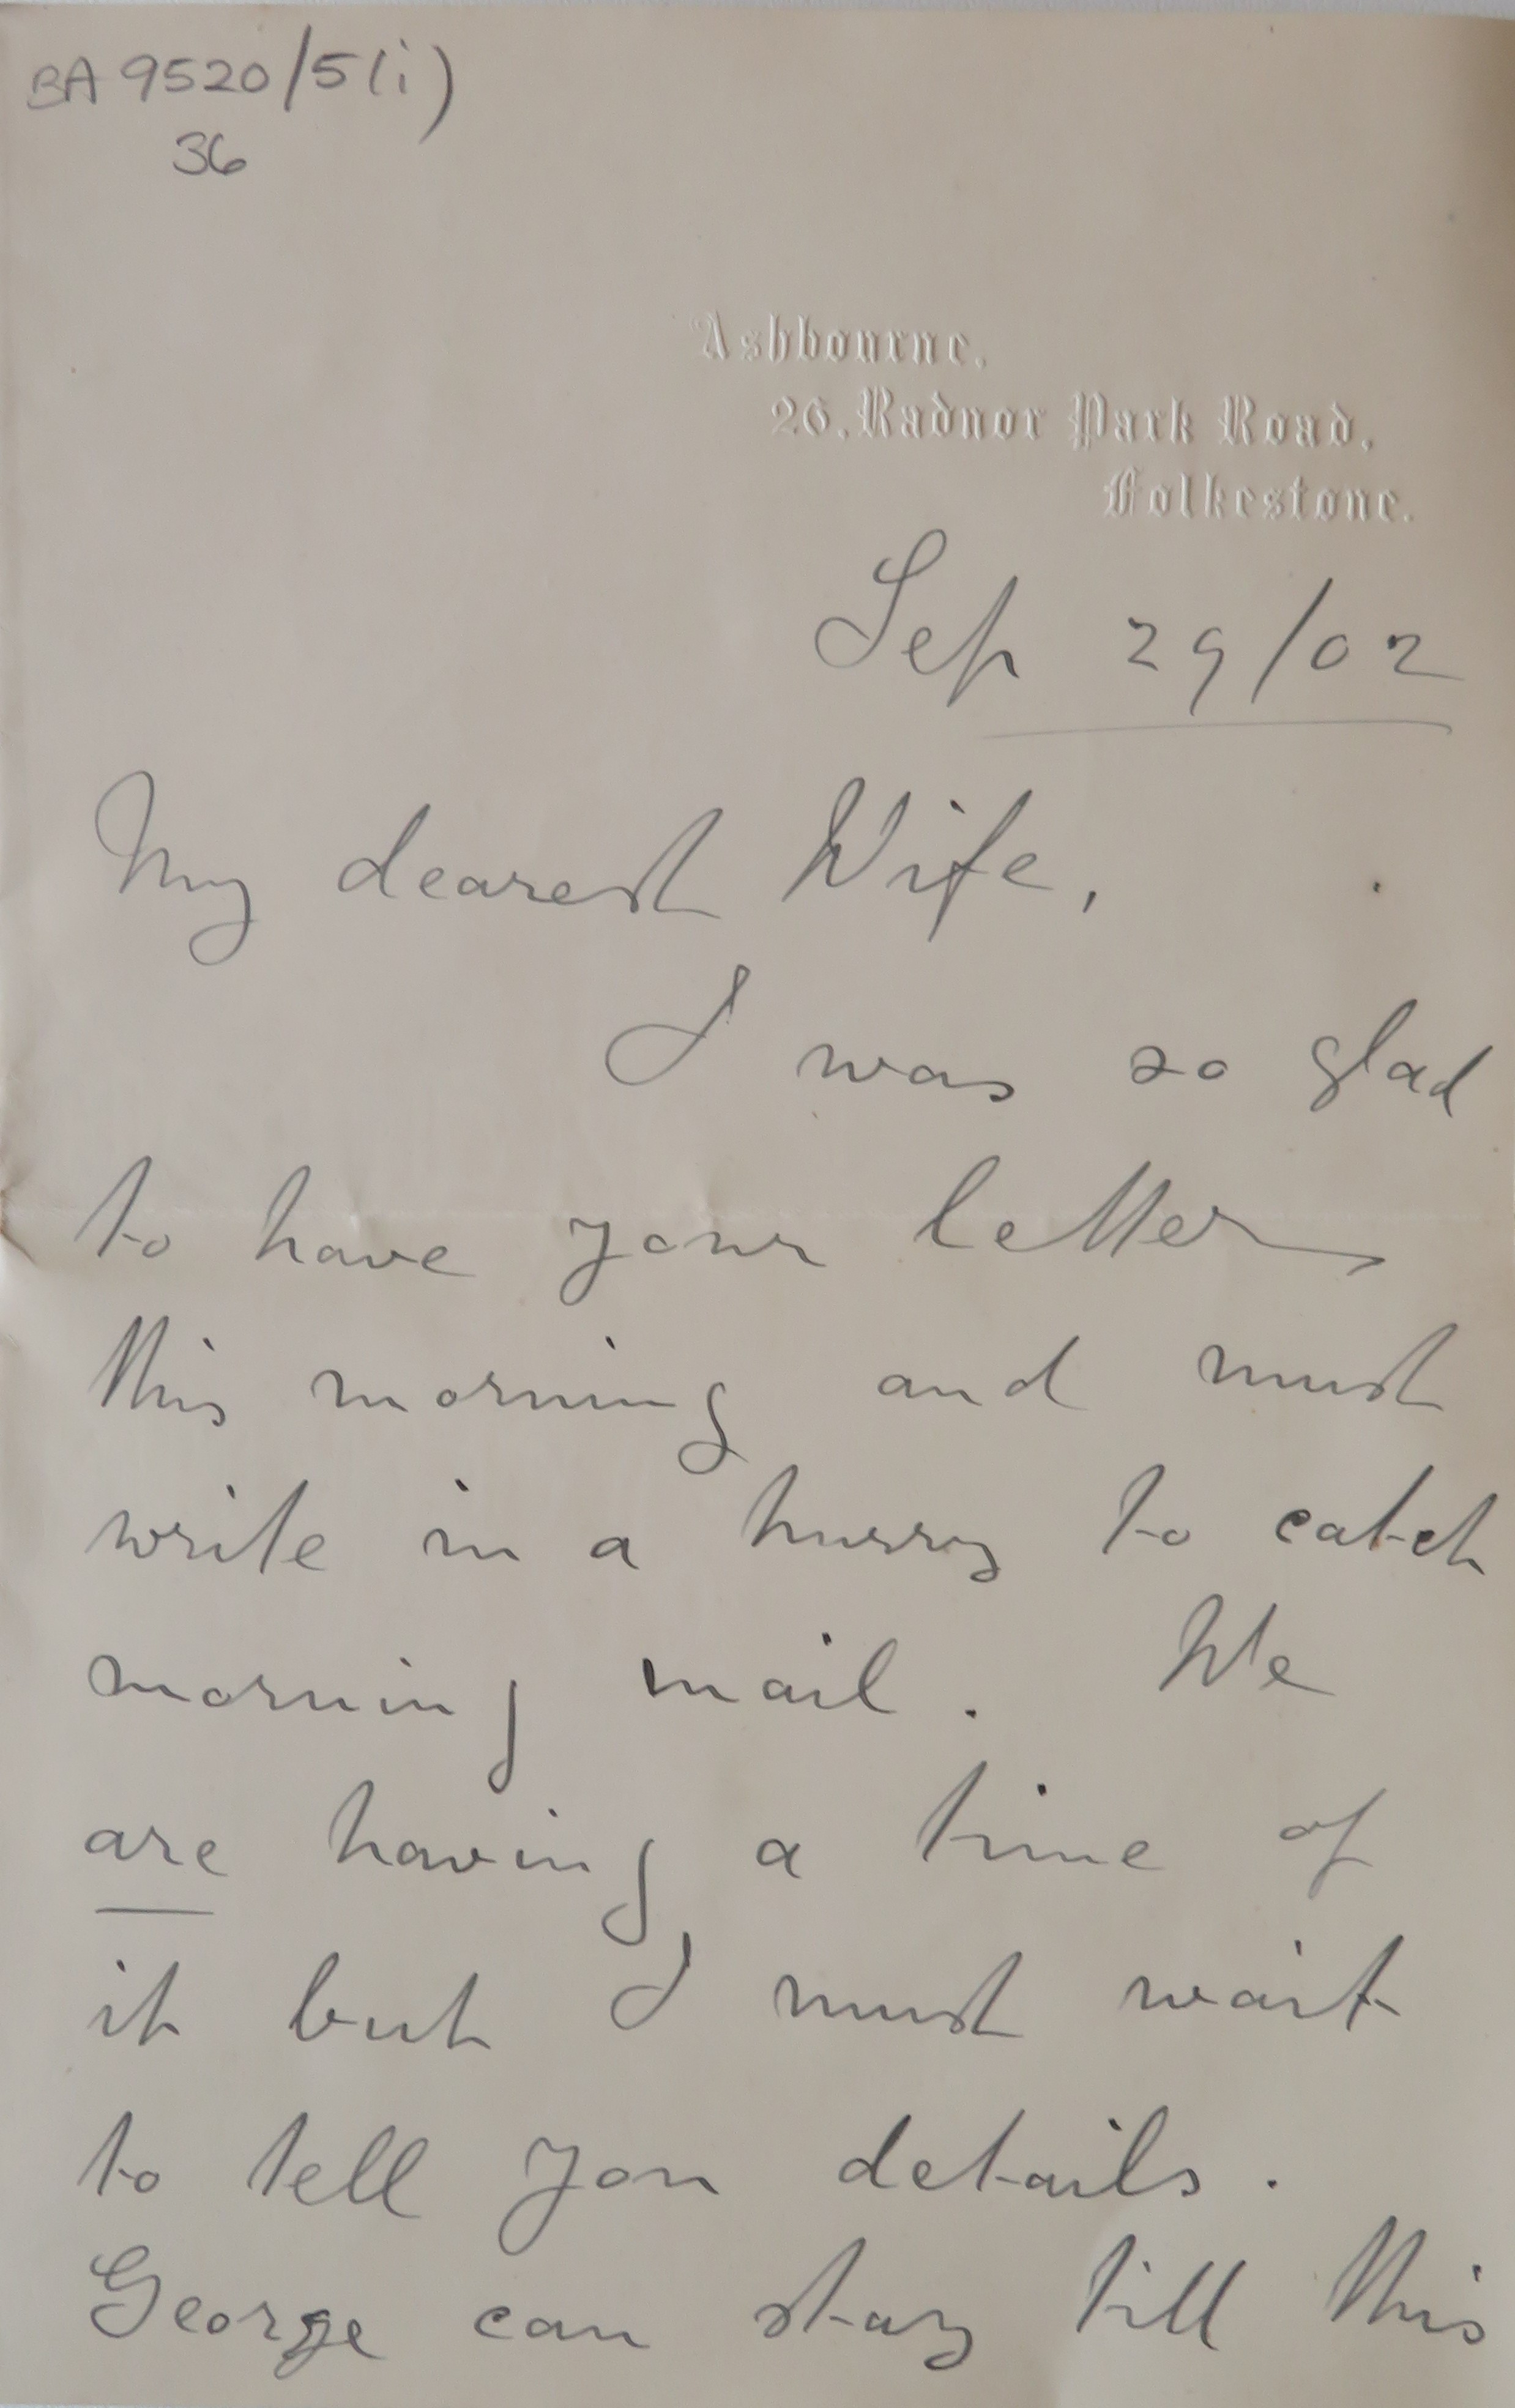 BA 9520/5(i)
36
Ashbourne,
26, Radnor Park Road,
Folkestone.
Sep 29/02
My dearest Wife,
I was so glad
to have your letter
this morning and must
write in a hurry to catch
morning mail. We
are having a time of
it but I must wait
to tell you details.
George can stay till this